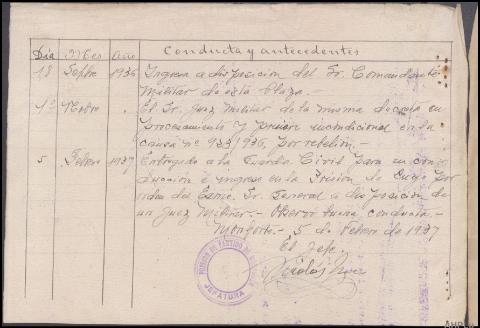 Día Mes Año Conducta y antecedentes
18 Sepbre 1936 Ingresa a disposición del Sr. Comandante
Militar de esta Plaza.-
1º Nobre " El Sr. Juez Militar de la misma decreta su
procesamiento y prisión incondicional en la
causa nº 923/936, por rebelión.-
5 Febrero 1937 Entregado a la Guardia Civil para su con-
ducción e ingreso en la Prisión de Lugo por
orden del Excmo. Sr. General a disposición de
un Juez Militar.- Observó buena conducta.-
Monforte.- 5 de Febrero de 1937
El Jefe,
Nicolás
PRISION DE PARTIDO DE
JEFATURA